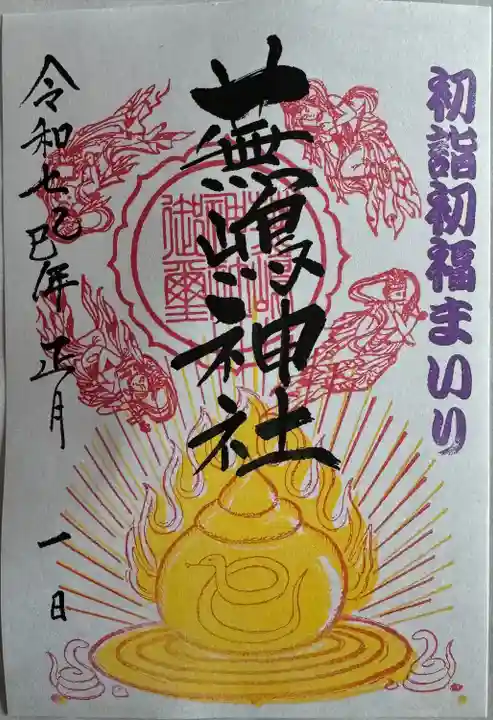 初詣初福まいり
蕪嶋神社
御璽
令和七乙巳年 正月 一日